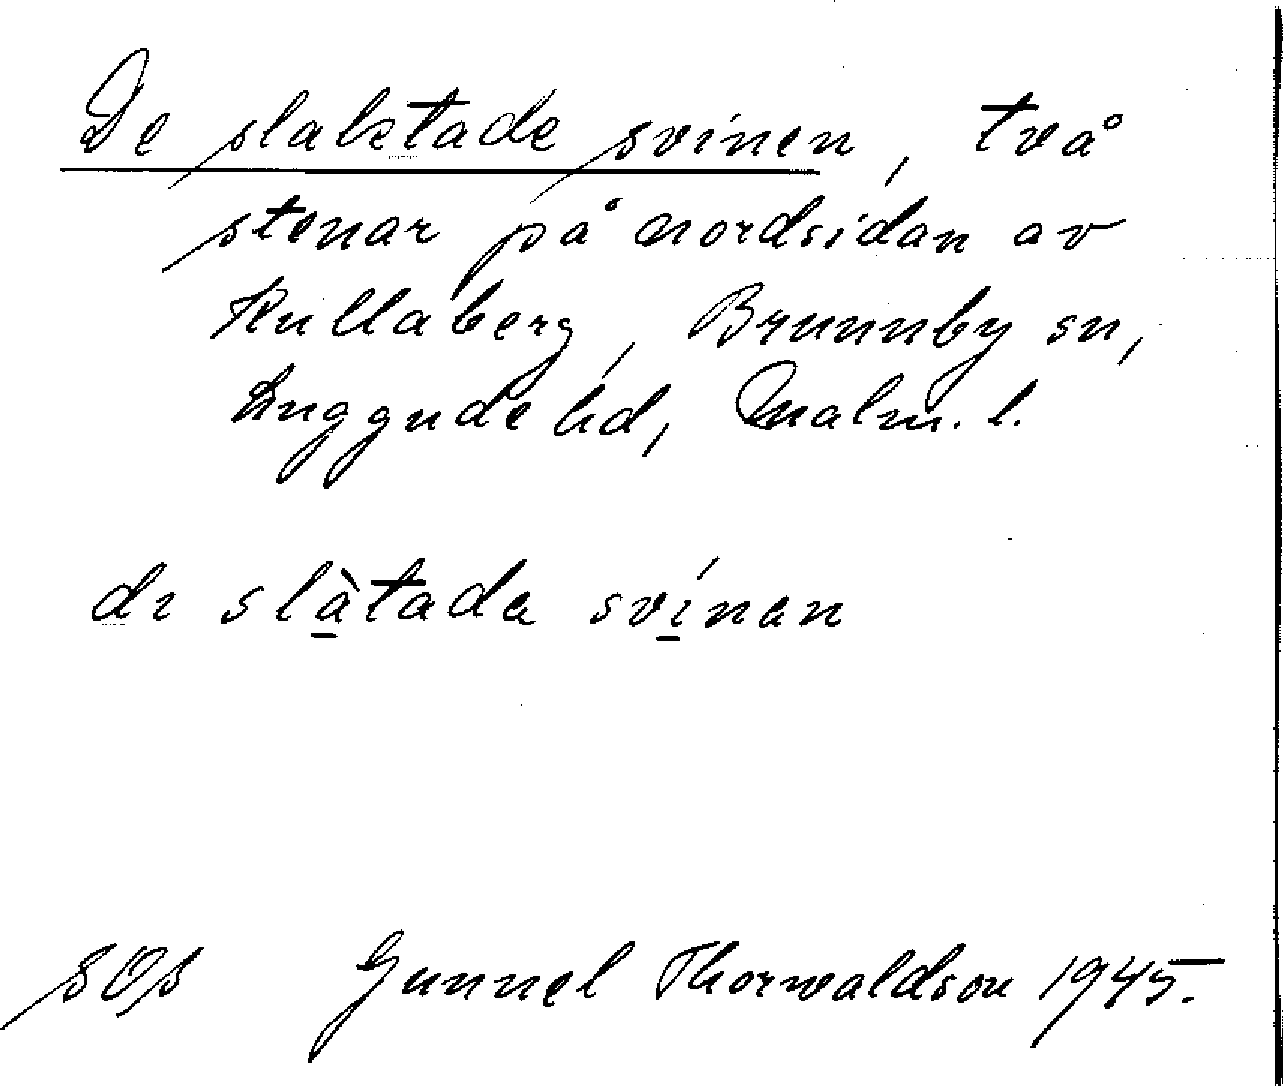 De slaktade svinen, två
stenar på nordsidan av
Kullaberg, Brunnby sn,
Luggude hd, Malm. l.
dɪ slàtada svínan
SOS Gunnel Thorwaldson 1945.